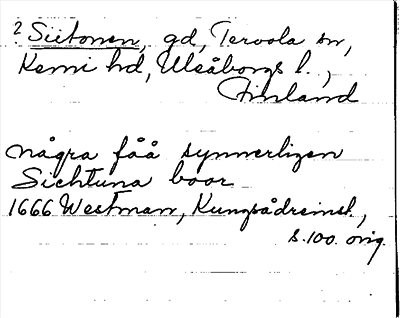 ? Siitonen, gd, Tervola sn,
Kemi hd, Uleåborgs l.,
Finland
några fåå synnerligen
Sichtuna boor
1666 Westman, Kungsådreinst.,
s. 100. orig.